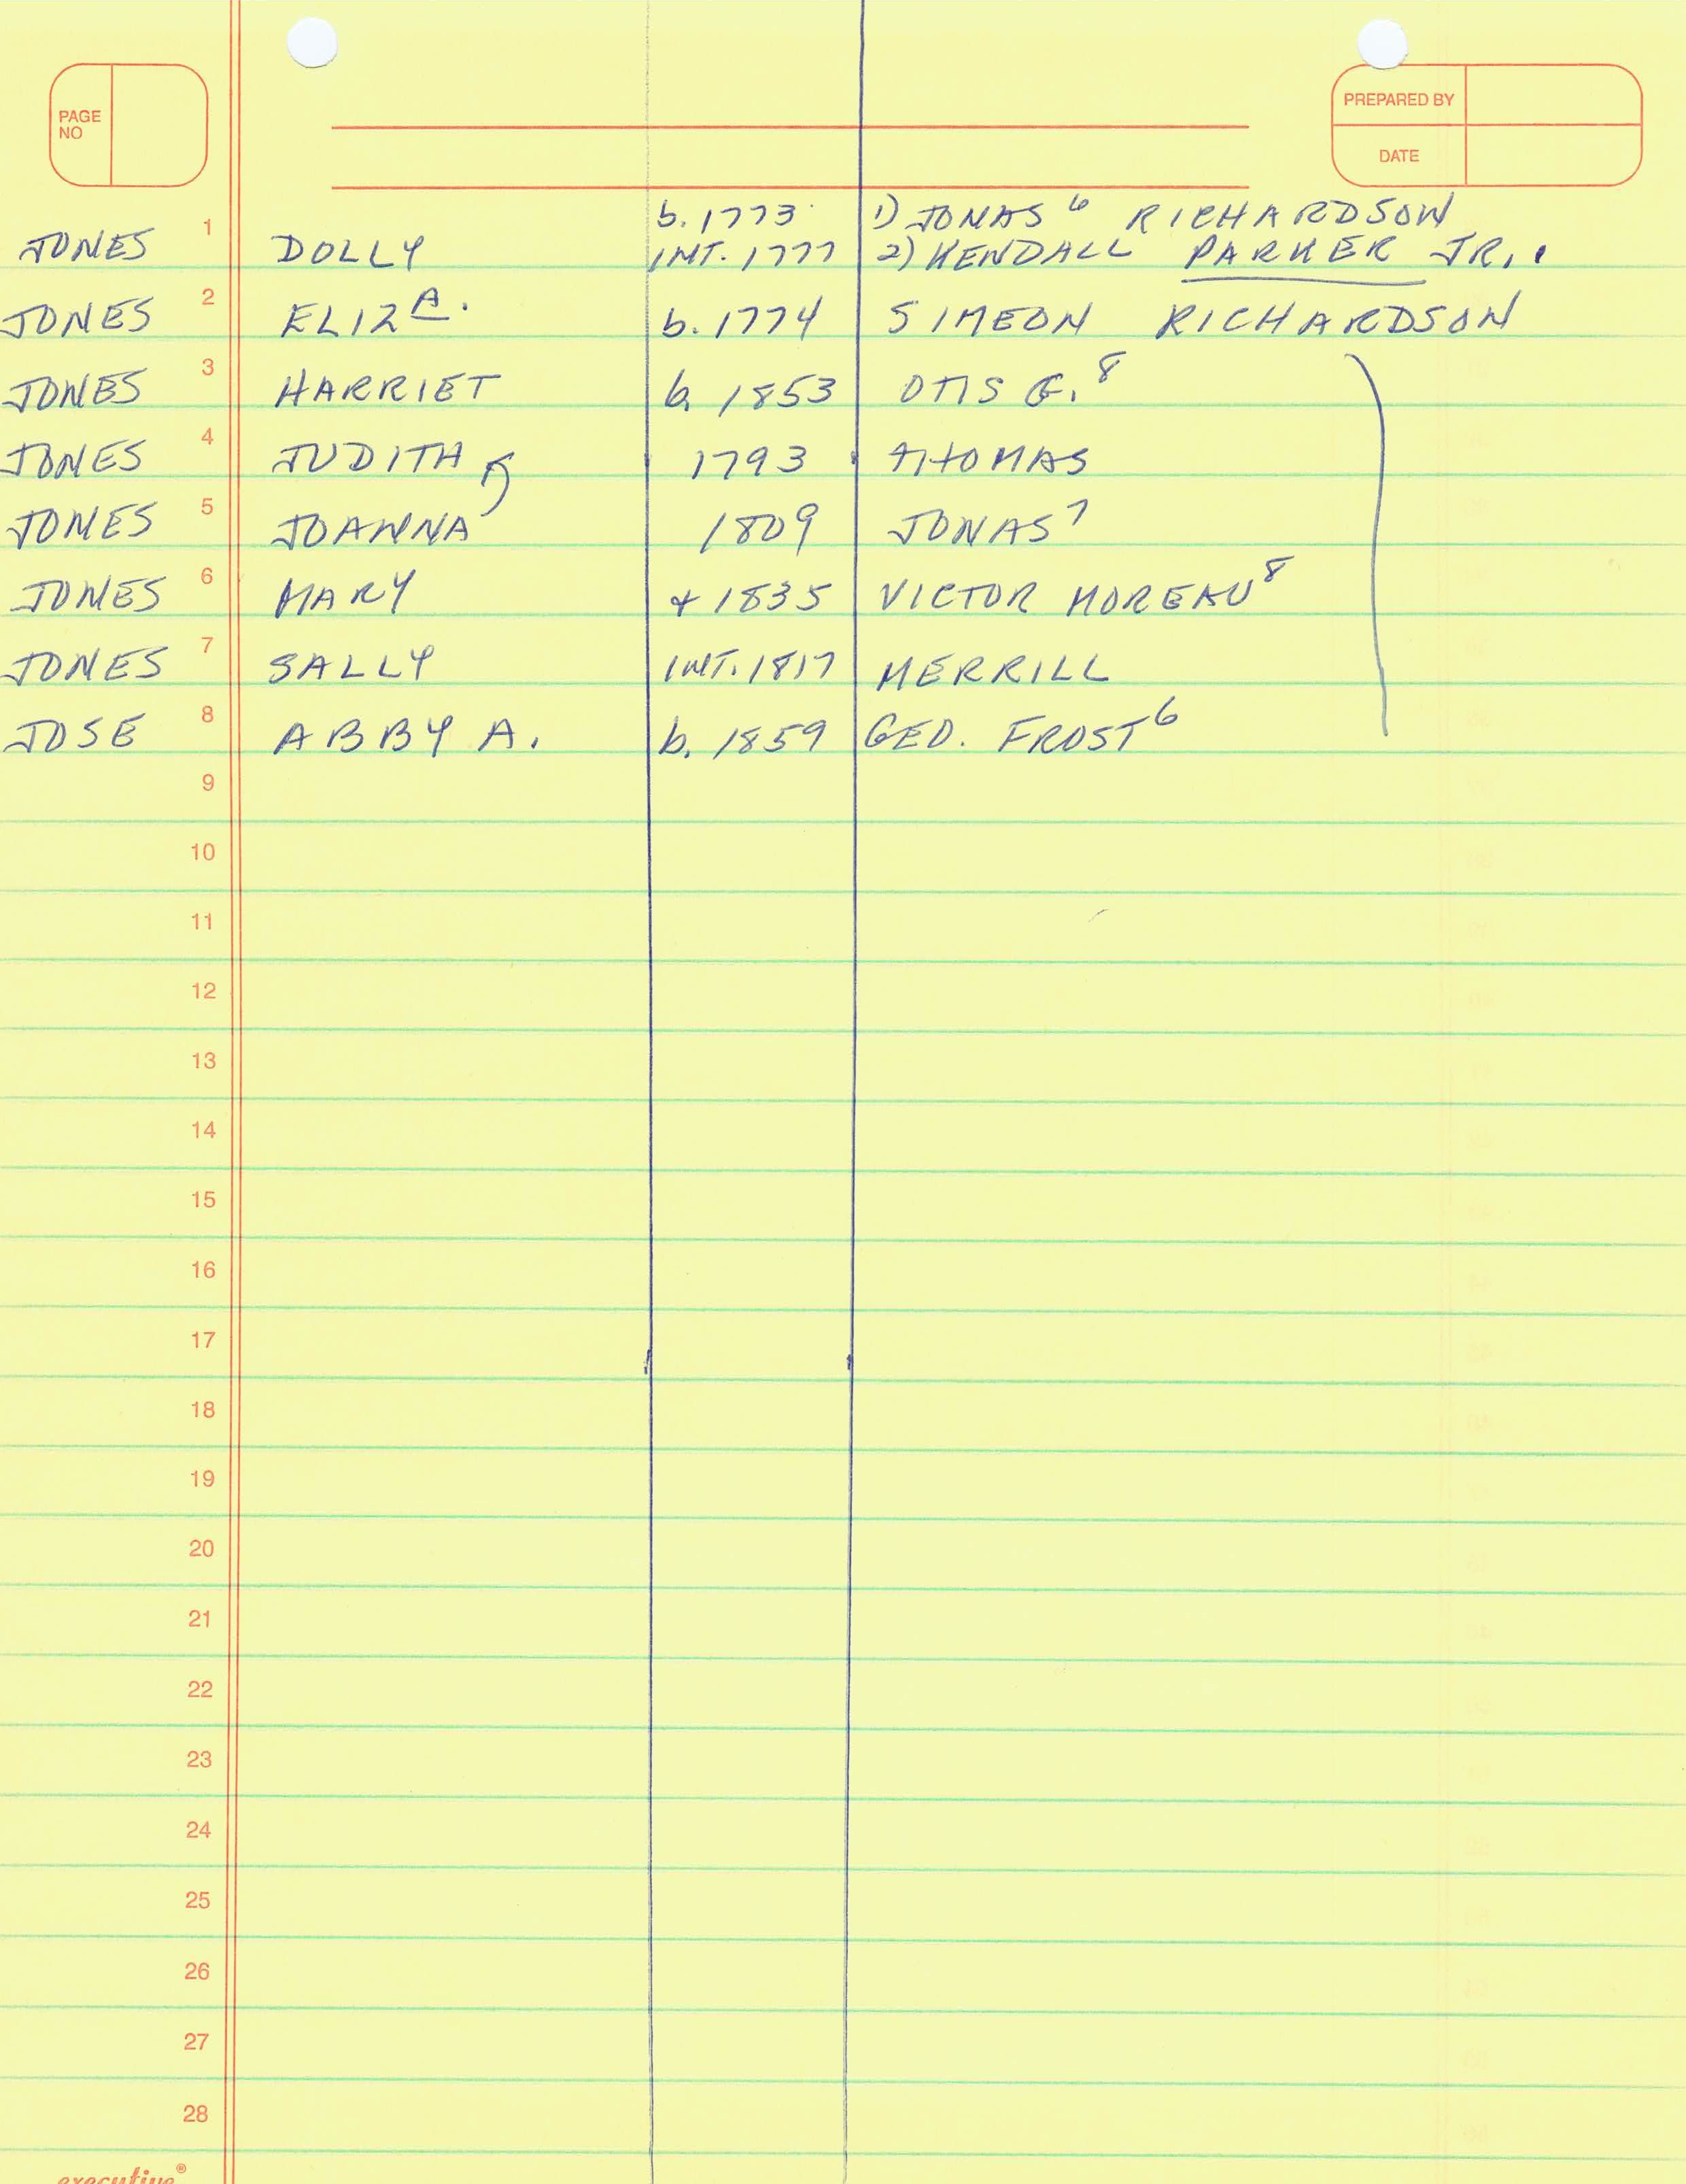 PAGE NO
PREPARED BY
DATE
b. 1773 1) JONAS⁶ RICHARDSON
1 JONES DOLLY INT. 1777 2) KENDALL PARKER JR.
2 JONES ELIZA. b. 1774 SIMEON RICHARDSON
3 JONES HARRIET b. 1853 OTIS G.⁸
4 JONES JUDITH 1793 THOMAS
5 JONES JOANNA 1809 JONAS⁷
6 JONES MARY + 1835 VICTOR MOREAU⁸
7 JONES SALLY INT. 1817 MERRILL
8 JOSE ABBY A. b. 1859 GEO. FROST⁶
9
10
11
12
13
14
15
16
17
18
19
20
21
22
23
24
25
26
27
28
executive®